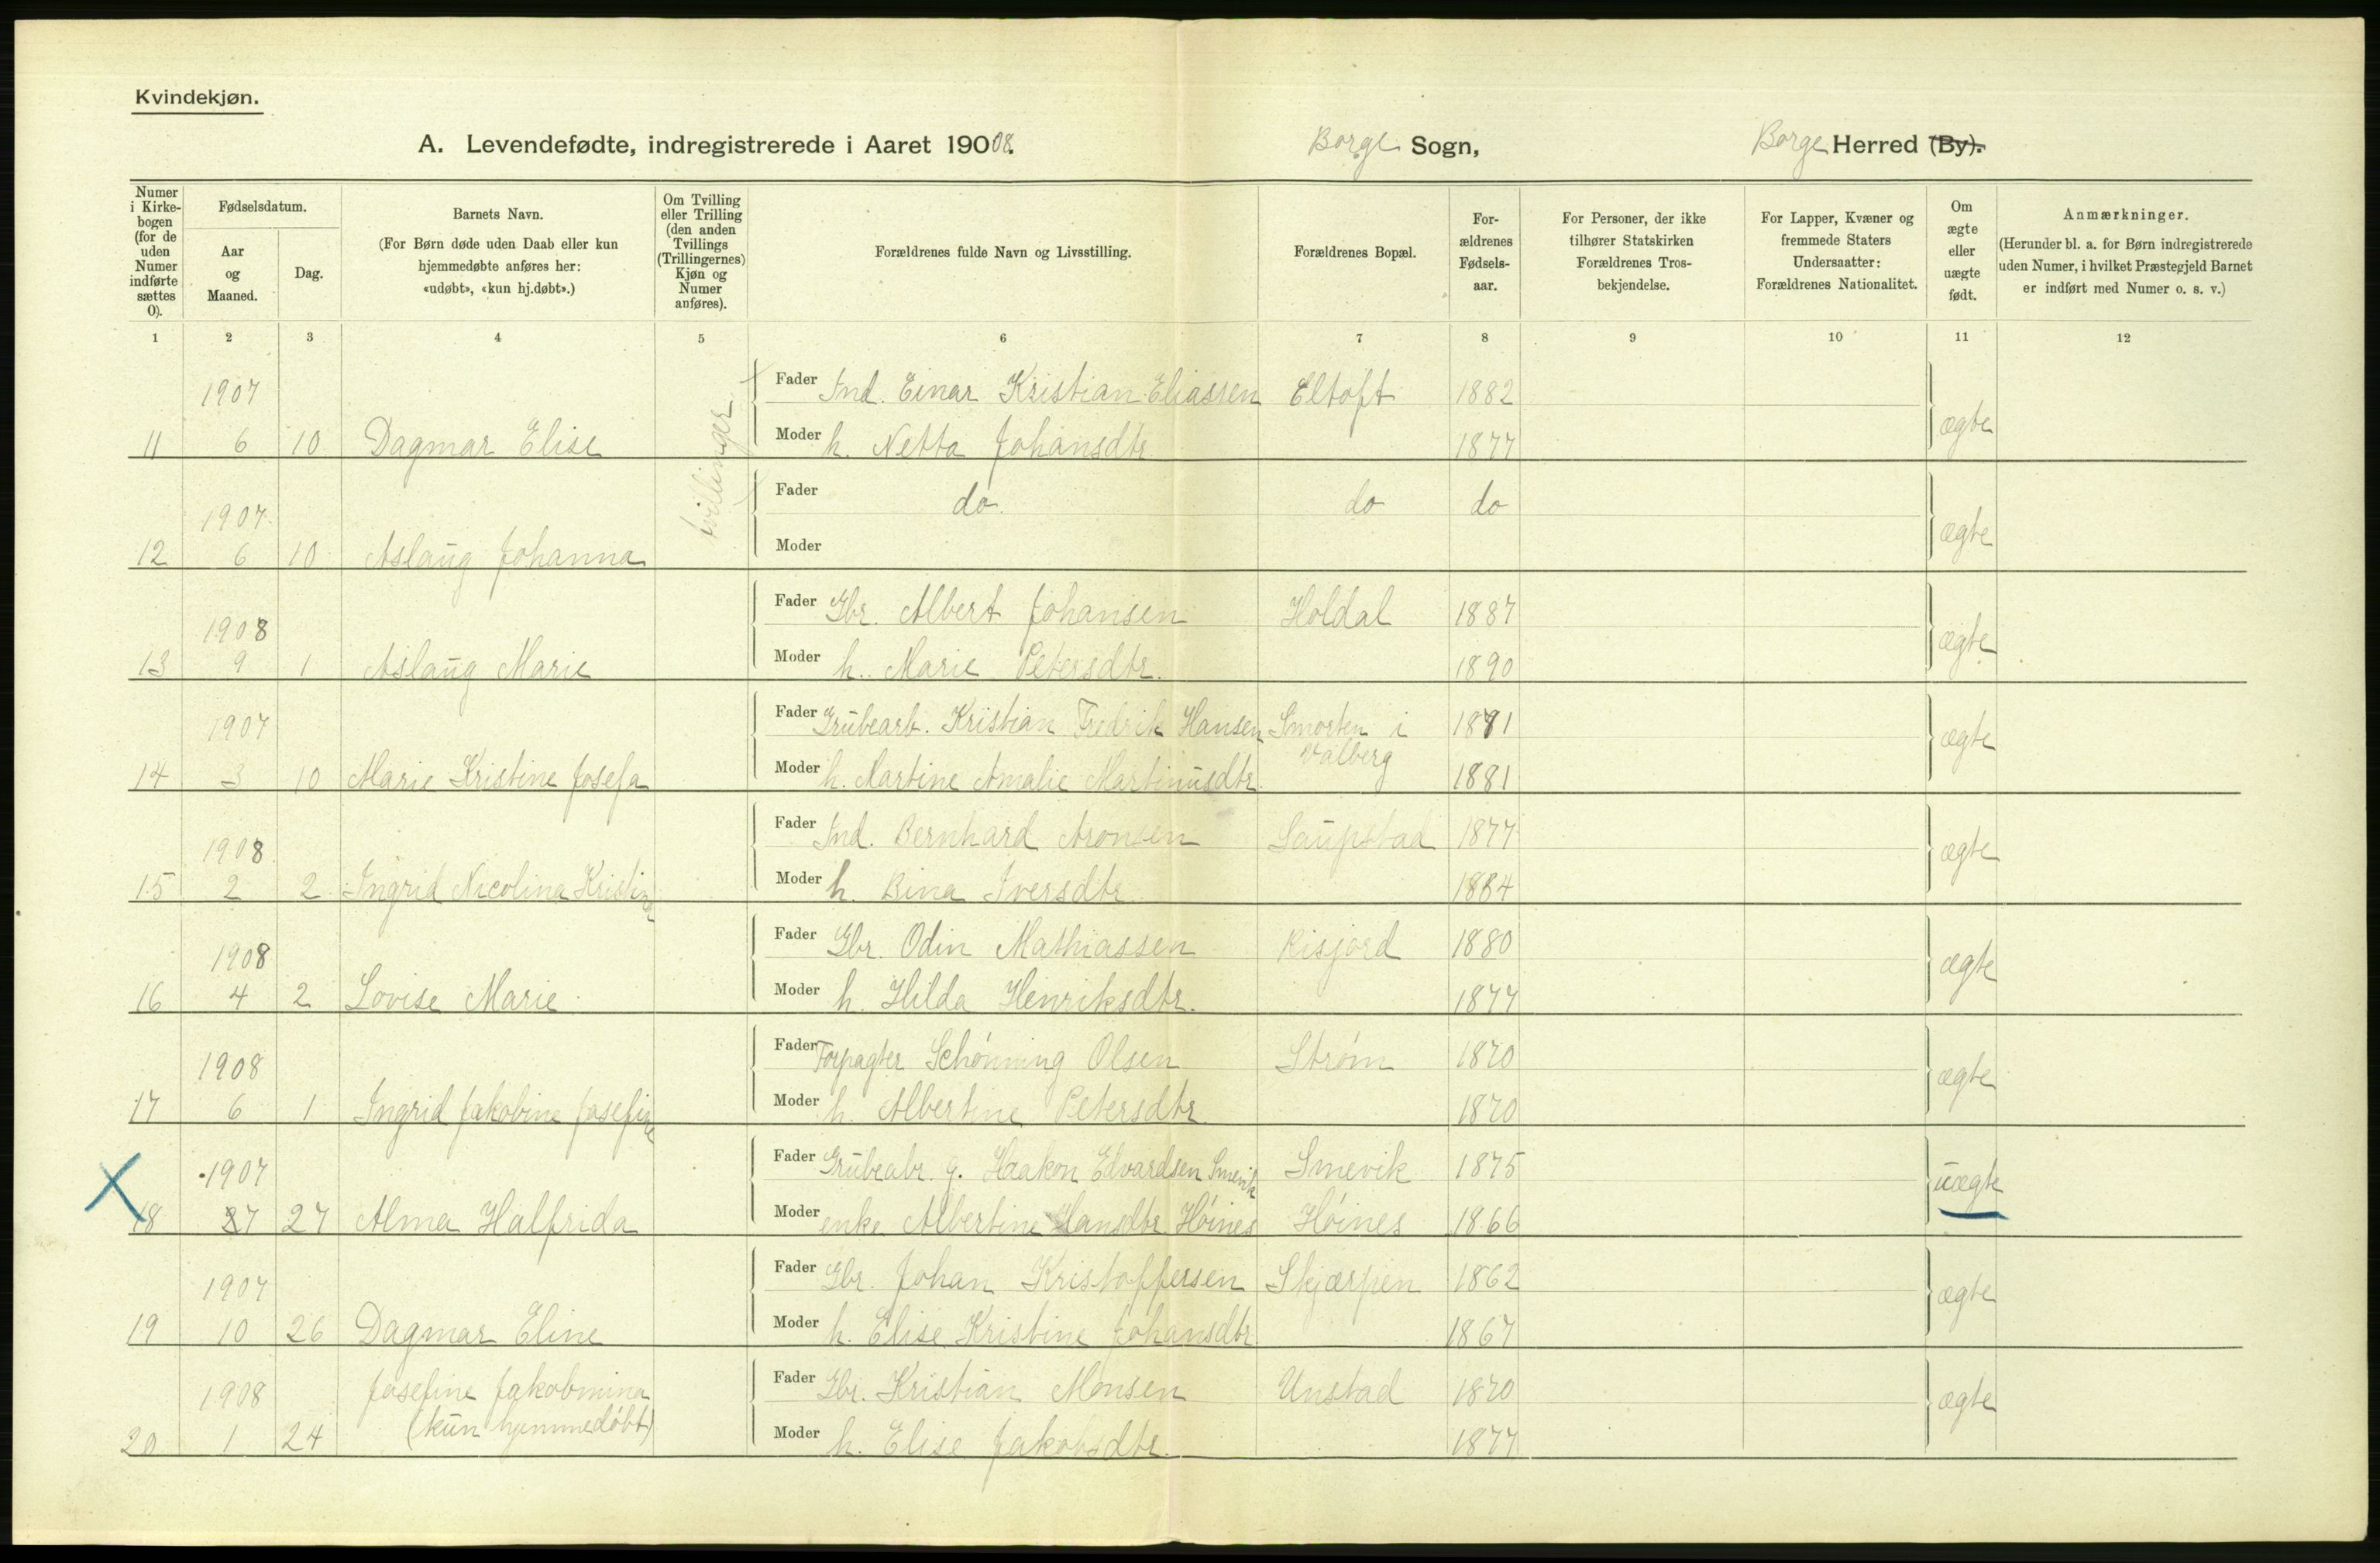 Kvindekjøn.
A. Levendefødte, indregistrerede i Aaret 1908. Borge Sogn, Borge Herred (By).
Numer i Kirkebogen (for de uden Numer indførte sættes 0).
Fødselsdatum.
Aar og Maaned.
Dag.
Barnets Navn.
(For Børn døde uden Daab eller kun hjemmedøbte anføres her: «udøbt», «kun hj.døbt».)
Om Tvilling eller Trilling (den anden Tvillings (Trillingernes) Kjøn og Numer anføres).
Forældrenes fulde Navn og Livsstilling.
Forældrenes Bopæl.
For-ældrenes Fødsels-aar.
For Personer, der ikke tilhører Statskirken Forældrenes Tros-bekjendelse.
For Lapper, Kvæner og fremmede Staters Undersaatter: Forældrenes Nationalitet.
Om ægte eller uægte født.
Anmærkninger.
(Herunder bl. a. for Børn indregistrerede uden Numer, i hvilket Præstegjeld Barnet er indført med Numer o. s. v.)
1 2 3 4 5 6 7 8 9 10 11 12
1907 Fader Ind. Einar Kristian Eliassen Eltoft 1882
11 6 10 Dagmar Elise Moder h. Netta Johansdtr. 1877 ægte
tvillinger
1907 Fader do. do do
12 6 10 Aslaug Johanna Moder ægte
1908 Fader Gbr. Albert Johansen Holdal 1887
13 9 1 Aslaug Marie Moder h. Marie Petersdtr. 1890 ægte
1907 Fader Grubearb. Kristian Fredrik Hansen Smorten i Valberg 1881
14 3 10 Marie Kristine Josefa Moder h. Martine Amalie Martinusdtr. 1881 ægte
1908 Fader Ind. Bernhard Aronsen Saupstad 1877
15 2 2 Ingrid Nicolina Kristine Moder h. Bina Iversdtr. 1884 ægte
1908 Fader Gbr. Odin Mathiassen Risjord 1880
16 4 2 Lovise Marie Moder h. Hilda Henriksdtr. 1877 ægte
1908 Fader Forpagter Schønning Olsen Strøm 1870
17 6 1 Ingrid Jakobine Josefine Moder h. Albertine Petersdtr. 1870 ægte
1907 Fader Grubeabr. g. Haakon Edvardsen Smevik Smevik 1875
18 7 27 Alma Halfrida Moder enke Albertine Hansdtr. Høines Høines 1866 uægte
1907 Fader Gbr. Johan Kristoffersen Skjærpen 1862
19 10 26 Dagmar Eline Moder h. Elise Kristine Johansdtr. 1867 ægte
1908 Josefine Jakobmina Fader Gbr. Kristian Monsen Unstad 1870
20 1 24 (kun hjemmedøbt) Moder h. Elise Jakobsdtr. 1877 ægte